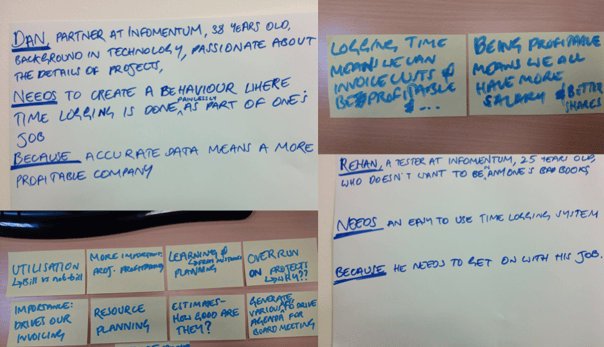 DAN, PARTNER AT INFOMENTUM, 38 YEARS OLD,
BACKGROUND IN TECHNOLOGY, PASSIONATE ABOUT
THE DETAILS OF PROJECTS,
NEEDS TO CREATE A BEHAVIOUR WHERE
TIME LOGGING IS DONE PAINLESSLY AS PART OF ONE'S
JOB
BECAUSE ACCURATE DATA MEANS A MORE
PROFITABLE COMPANY
LOGGING TIME
MEANS WE CAN
INVOICE CUSTS &
BE PROFITABLE
&...
BEING PROFITABLE
MEANS WE ALL
HAVE MORE
SALARY & BETTER
SHARES
REHAN, A TESTER AT INFOMENTUM, 25 YEARS OLD,
WHO DOESN'T WANT TO BE IN ANYONE'S BAD BOOKS
NEEDS AN EASY TO USE TIME LOGGING SYSTEM
BECAUSE HE NEEDS TO GET ON WITH HIS JOB.
UTILISATION
↳ bill vs not-bill
MORE IMPORTANT:
PROJ. PROFITABILITY
LEARNING &
PLANNING
OVERRUN
ON PROJECT
↳ WHY??
IMPORTANCE:
DRIVES OUR
INVOICING
RESOURCE
PLANNING
ESTIMATES-
HOW GOOD ARE
THEY?
GENERATE
VARIOUS & DRIVE
AGENDA FOR
BOARD MEETING